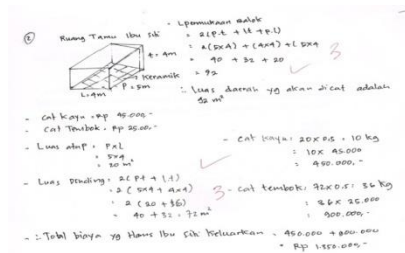 2 Ruang Tamu Ibu Siti
t = 4m
Keramik
P = 5m
L = 4m
- Lpermukaan balok
= 2(p.t + l.t + p.l)
= 2(5x4) + (4x4) + (5x4
= 40 + 32 + 20
= 92
3
∴ Luas daerah yg akan di cat adalah
92 m²
- Cat Kayu = Rp 45.000,-
- Cat Tembok = Rp 25.000,-
- Luas atap = PxL
= 5x4
= 20 m²
- Luas Dinding = 2(Pt + lt)
= 2(5x4 + 4x4)
= 2(20 + 16)
= 40 + 32 = 72 m²
- Cat Kayu = 20 x 0.5 = 10 kg
= 10 x 45.000
= 450.000,-
3
- Cat tembok = 72 x 0.5 = 36 kg
= 36 x 25.000
= 900.000,-
- ∴ Total biaya yg Harus Ibu Siti Keluarkan = 450.000 + 900.000
= Rp 1.350.000,-